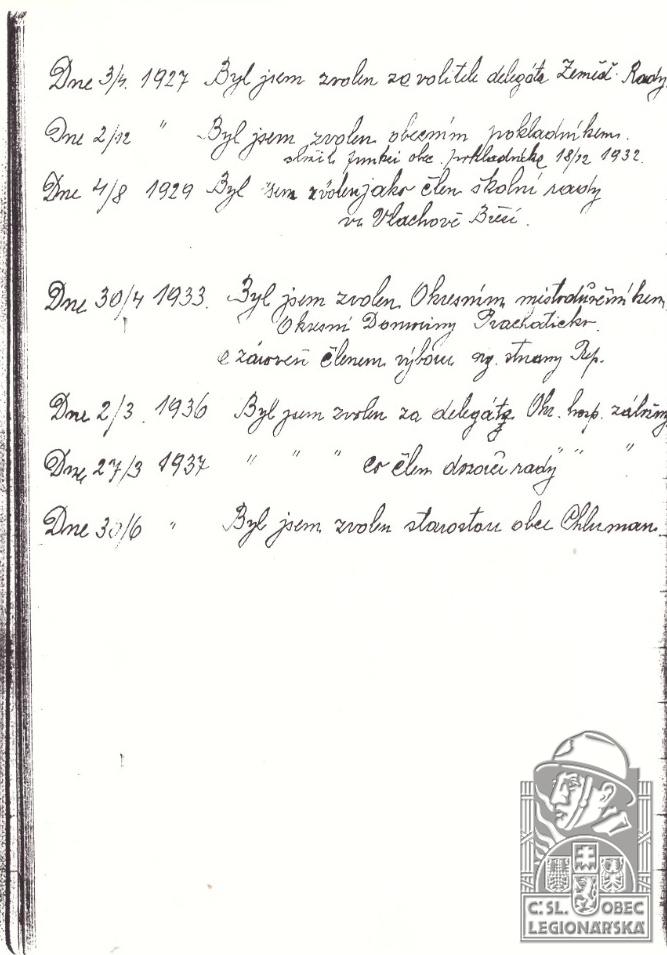 Dne 3/4. 1927 Byl jsem zvolen za volitele delegáta Zeměd. Rady.
Dne 2/12 " Byl jsem zvolen obecním pokladníkem.
složil funkci obc. pokladníka 18/12 1932.
Dne 4/8 1929 Byl jsem zvolen jako člen školní rady
ve Vlachově Březí.
Dne 30/4 1933. Byl jsem zvolen Okresním místodůvěrníkem
Okresní Domoviny Prachaticko.
a zároveň členem výboru strany Rep.
Dne 2/3. 1936 Byl jsem zvolen za delegáta Okr. hosp. záložny
Dne 27/3 1937 " " " co člen dozorčí rady " " "
Dne 30/6 " Byl jsem zvolen starostou obce Chluman.
Č. SL. OBEC
LEGIONÁŘSKÁ